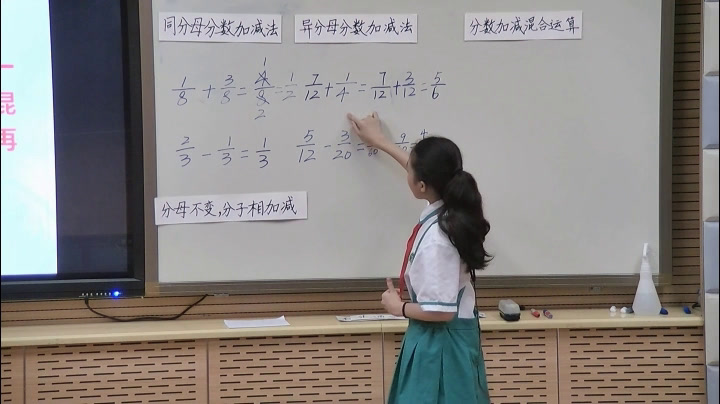 同分母分数加减法
异分母分数加减法
分数加减混合运算
1/8 + 3/8 = 4/8 = 1/2
7/12 + 1/4 = 7/12 + 3/12 = 5/6
2/3 - 1/3 = 1/3
5/12 - 3/20 =
分母不变,分子相加减
一
昆
再